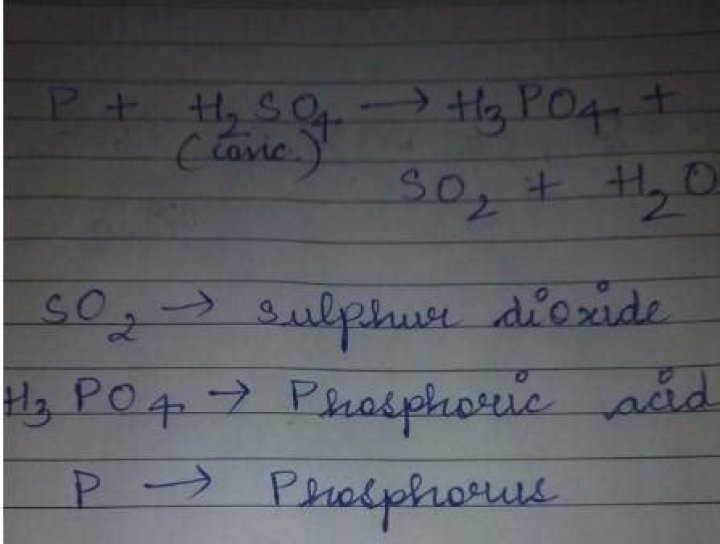 P + H₂SO₄ → H₃PO₄ +
(conc.)
SO₂ + H₂O
SO₂ → sulphur dioxide
H₃PO₄ → Phosphoric acid
P → Phosphorus